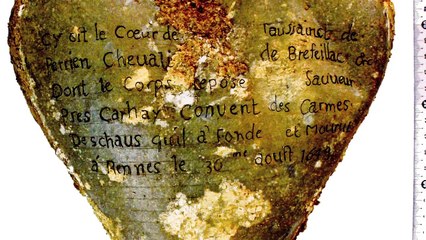 Cy git le Cœur de Toissainct de
Perrien Chevali de Brefeillac
Dont le Corps repose Sauveur
Pres Carhay Convent des Carmes
Deschaus quil à fonde et mourut
à Rennes le 30 me aoust